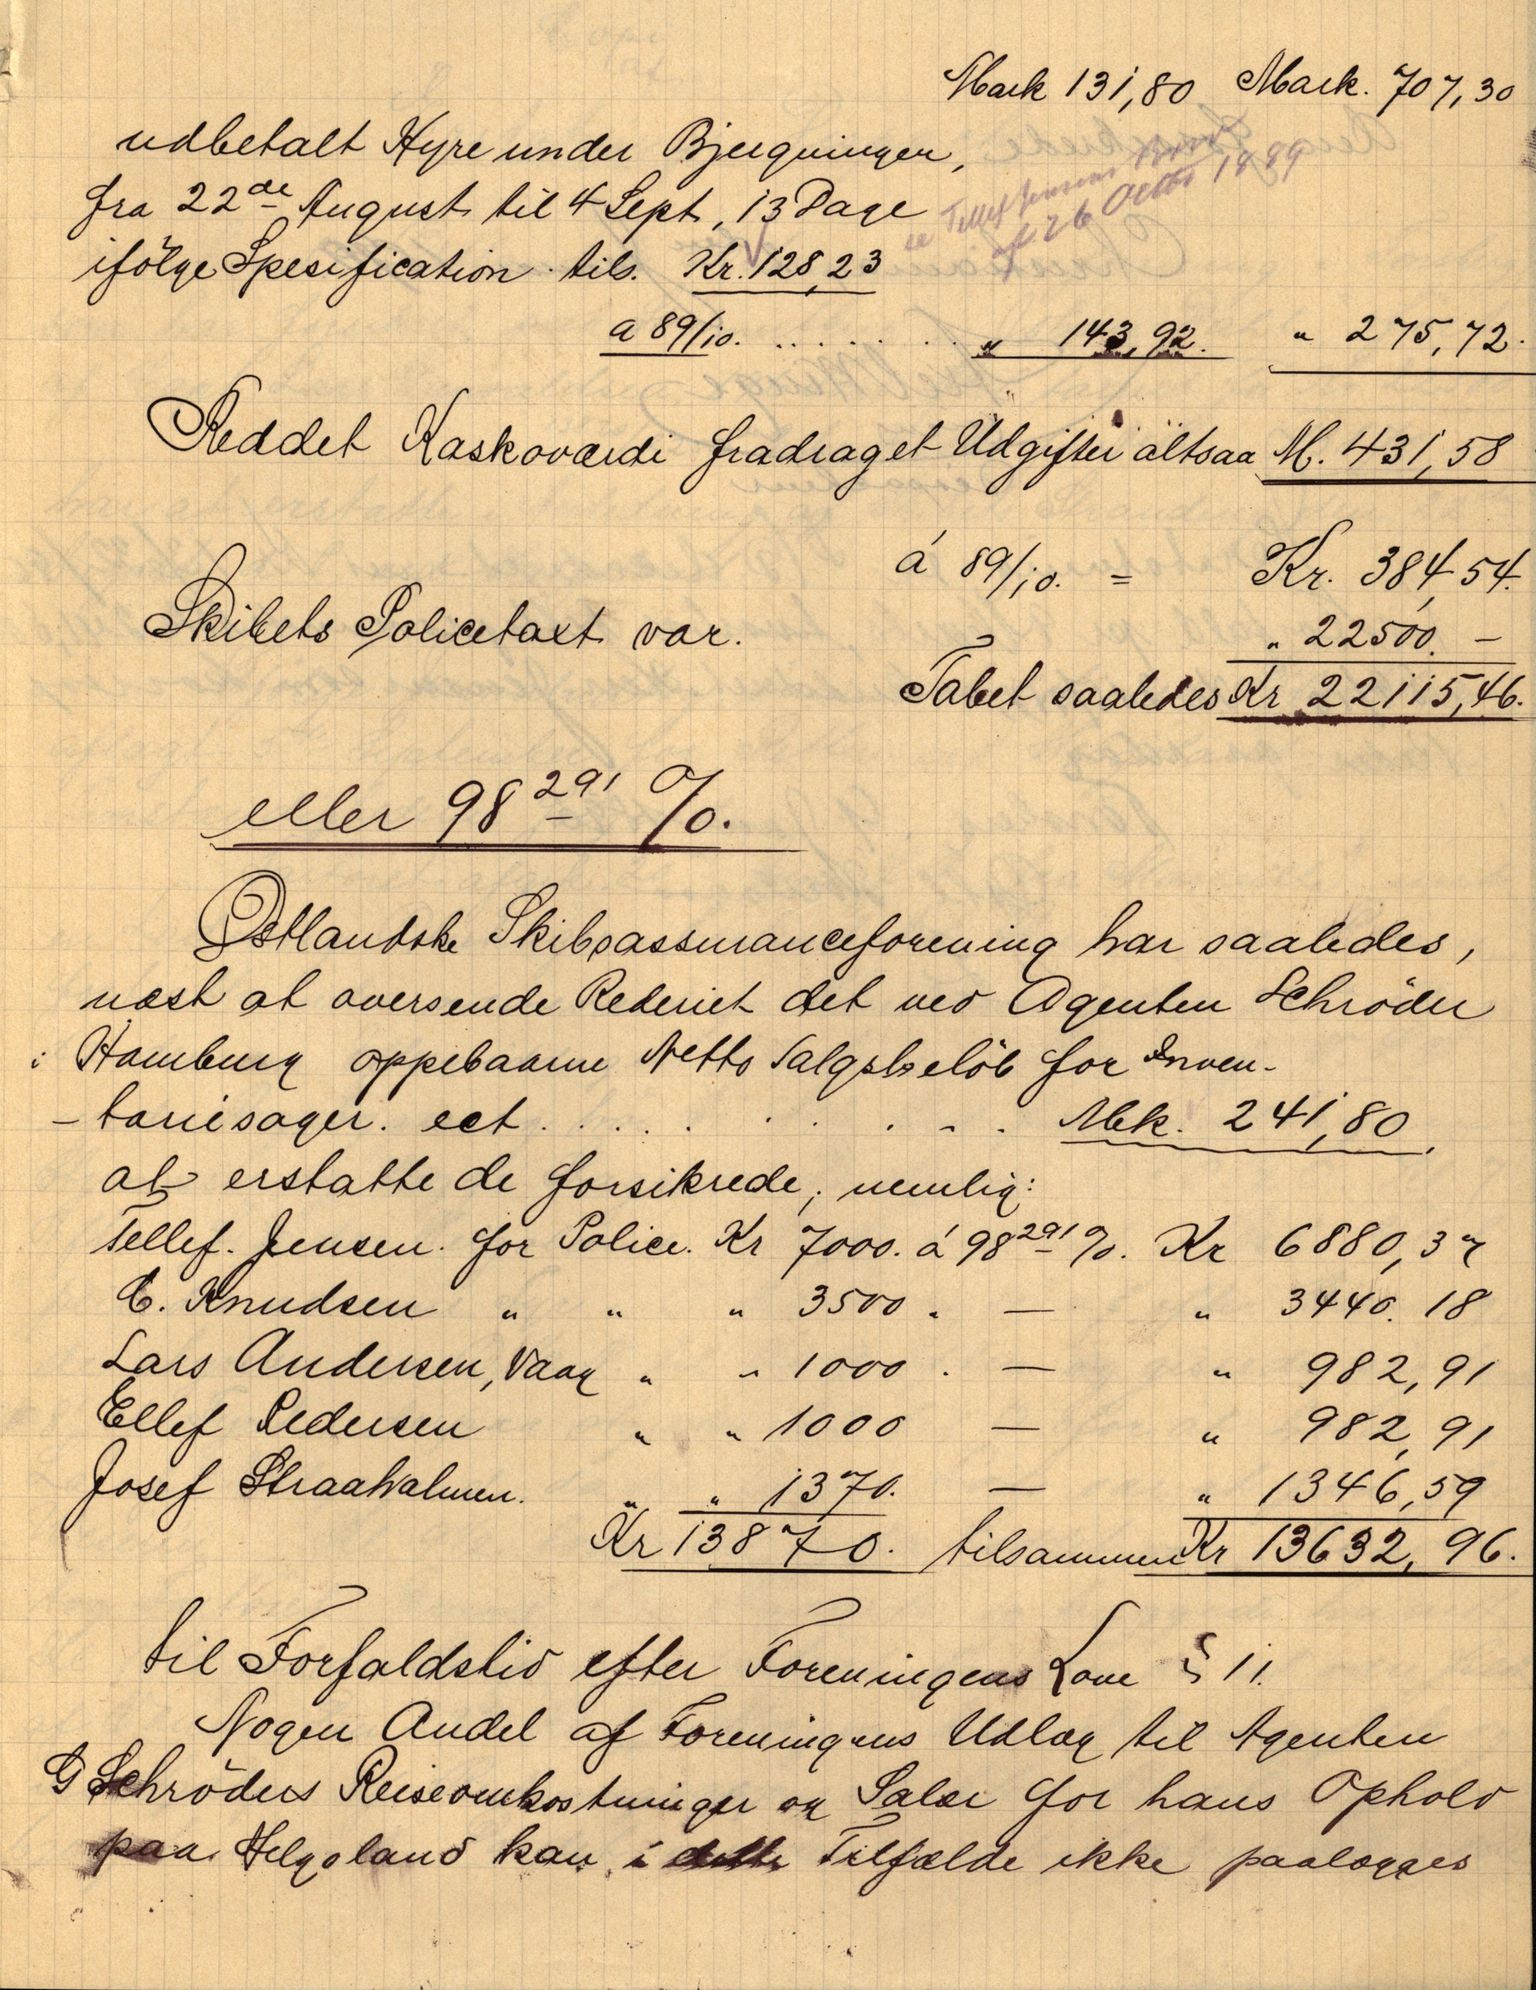 Mark 131,80 Mark. 707,30
udbetalt Hyre under Bjergningen,
fra 22de August til 4 Sept, 13 Dage
ifölge Spesification tils. Kr. 128,23
Tellef Jensens Brev
af 26 Octbr 1889
a 89/10. ........ " 143,92. " 275,72.
Reddet Kaskoværdi fradraget Udgifter altsaa M. 431,58
á 89/10. = Kr. 384,54.
Skibets Policetaxt var. " 22500. —
Tabet saaledes Kr 22115,46.
eller 98 291 %.
Östlandske Skibsassuranceforening har saaledes,
næst at oversende Rederiet det ved Agenten Schröder
i Hamburg oppebaarne Netto Salgsbelöb for Inven-
-tariesager. ect. . . . . . . . . . Mk. 241,80.
at erstatte de forsikrede, nemlig:
Tellef. Jensen. for Police. Kr 7000. á 98 291 %. Kr 6880,37
C. Knudsen " " " 3500. — " 3440.18
Lars Andersen, Vaag " " 1000. — " 982,91
Ellef Pedersen " " 1000 — " 982,91
Josef Straaholmen. " " 1370. — " 1346,59
Kr 13870. tilsammen Kr 13632,96.
til Forfaldstid efter Foreningens Love § 11.
Nogen Andel af Foreningens Udlæg til Agenten
G Schröders Reiseomkostninger og Salær for hans Ophold
paa Helgoland kan i dette Tilfælde ikke paalægges